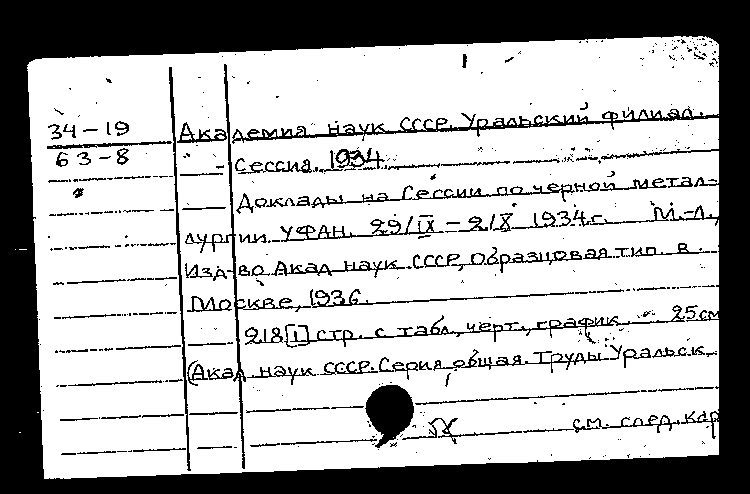 34-19 Академия наук СССР. Уральский филиал.
63-8 - Сессия. 1934.
Доклады на Сессии по черной метал-
лургии УФАН. 29/IX - 2/X 1934 г. М.-Л.,
Изд-во Акад наук СССР, Образцовая тип. в
Москве, 1936.
218[1] стр. с табл., черт., график. 25 см
(Акад наук СССР. Серия общая. Труды Уральск.
см. след. кар